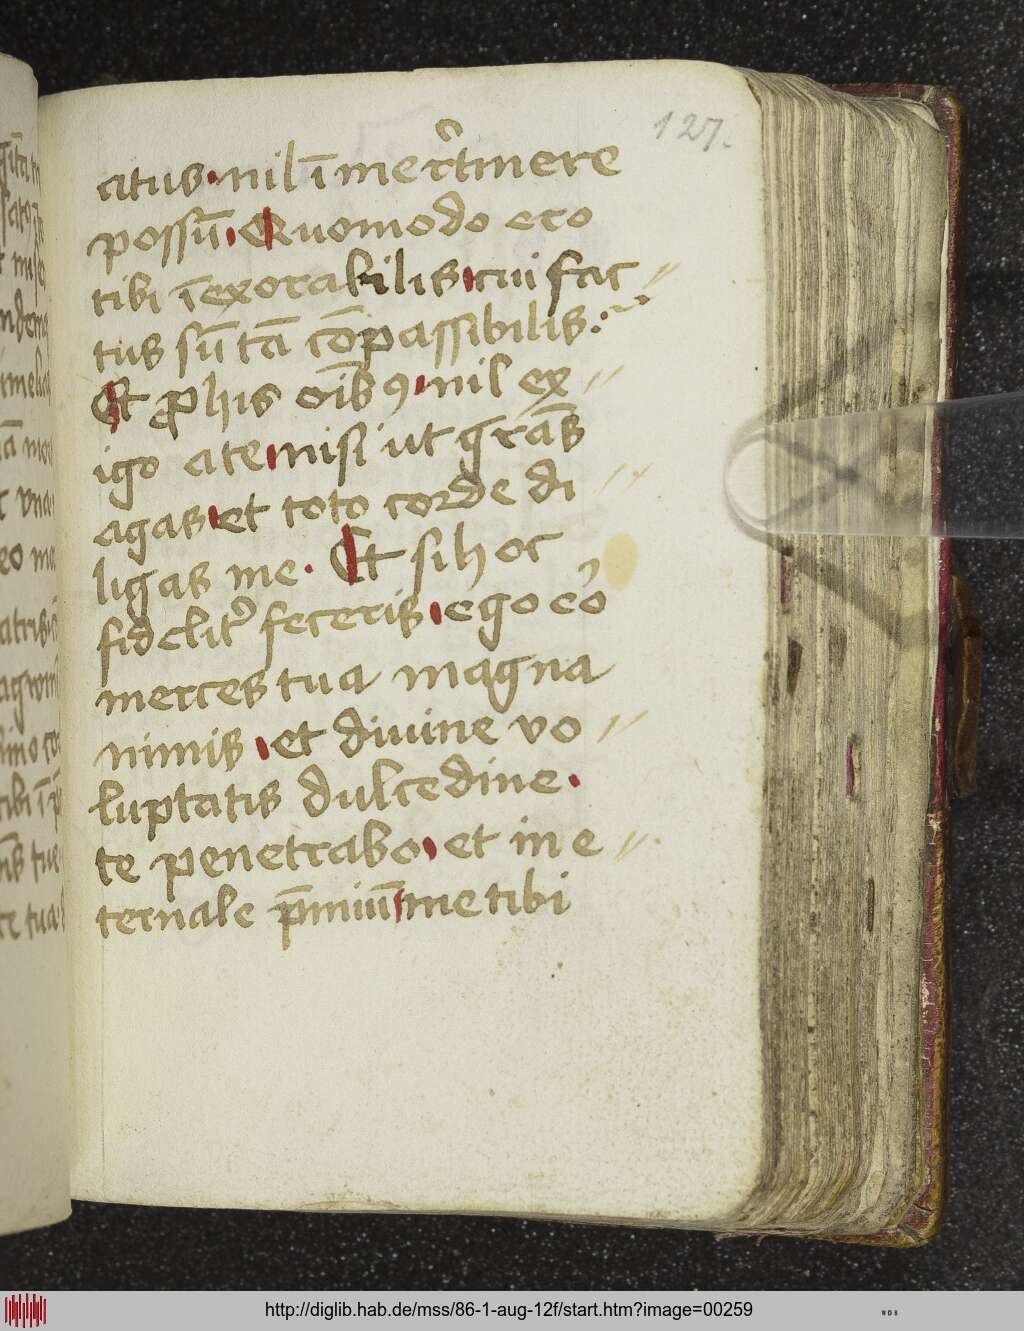 127.
citus · nil ī me cͬtmere
possū · Quomodo ero
tibi īexorabilis cui fac //
tus sū tā cōpassibilis :~
Et ꝓ his oīb9 nil ex //
igo a te nisi ut grās
agas et toto corde di //
ligas me · Et si hoc
fidelit͛ feceris ego eͦo
merces tua magna
nimis et diuine vo //
luptatis dulcedine ·
te penetrabo et in e //
ternale p̄miū me tibi
http://diglib.hab.de/mss/86-1-aug-12f/start.htm?image=00259